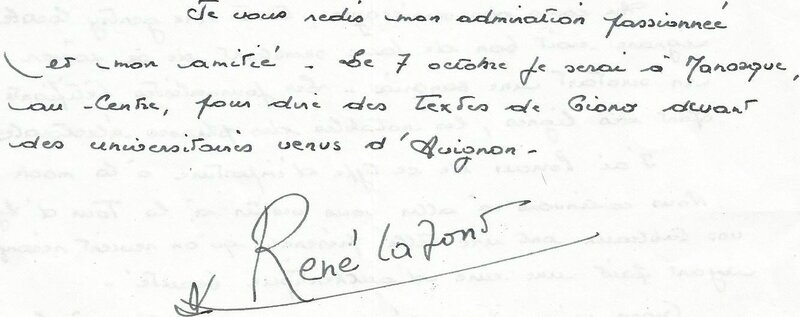 Je vous redis mon admiration passionnée
et mon amitié. Le 7 octobre je serai à Manosque,
au Centre, pour dire des textes de Giono devant
des universitaires venus d'Avignon.
René Lafont